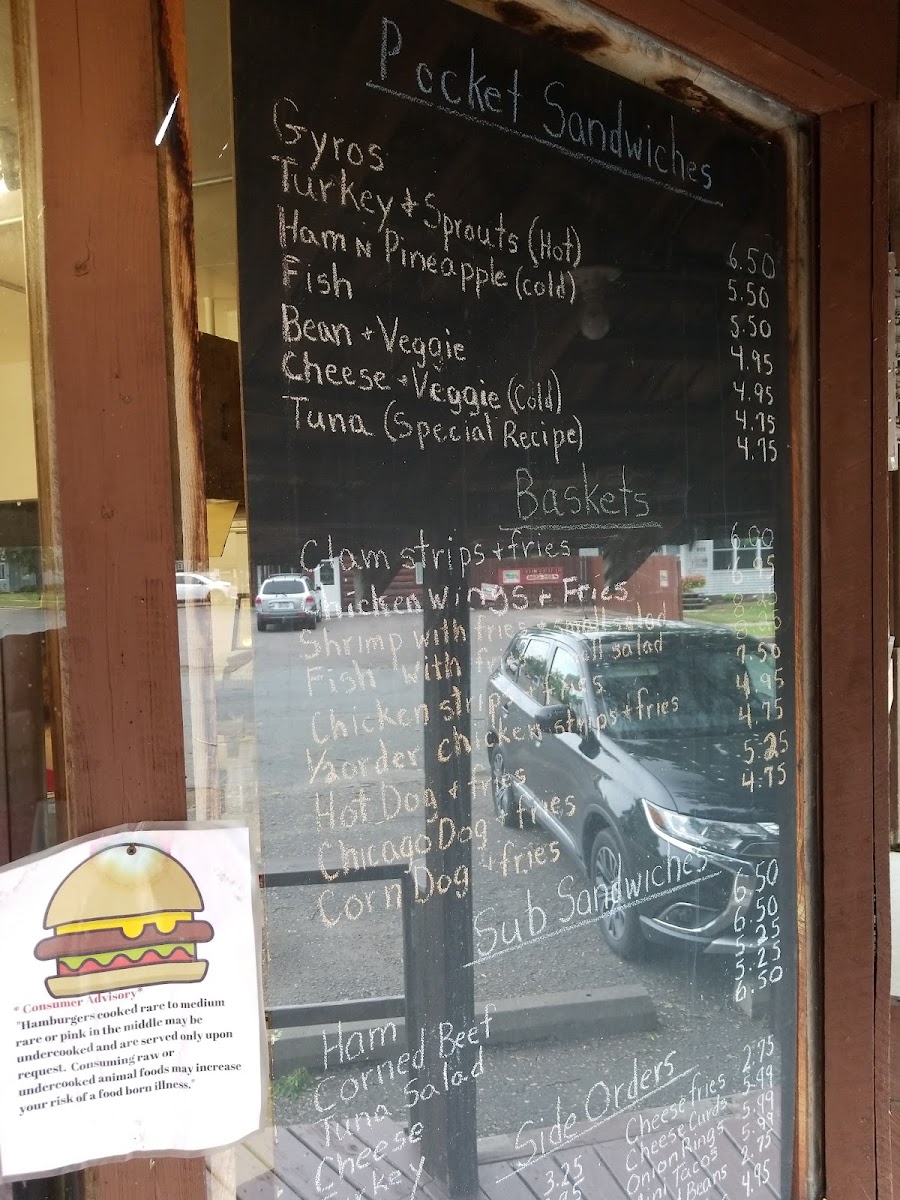 Pocket Sandwiches
Gyros 6.50
Turkey & Sprouts (Hot) 5.50
Ham N Pineapple (cold) 5.50
Fish 4.95
Bean + Veggie 4.95
Cheese + Veggie (Cold) 4.75
Tuna (Special Recipe) 4.75
Baskets
Clam strips + fries 6.00
Chicken wings & Fries
Shrimp with fries + small salad
Fish with fries small salad
Chicken strips + fries 7.50
1/2 order chicken strips + fries 4.95
Hot Dog + fries 4.75
Chicago Dog + fries 5.25
Corn Dog + fries 4.75
Sub Sandwiches
Ham 6.50
Corned Beef 6.50
Tuna Salad 5.25
Cheese 5.25
Turkey 6.50
Side Orders
3.25
Cheese fries 2.75
Cheese Curds 5.99
Onion Rings 5.99
Mini Tacos 5.99
Beans 2.75
4.95
* Consumer Advisory*
"Hamburgers cooked rare to medium
rare or pink in the middle may be
undercooked and are served only upon
request. Consuming raw or
undercooked animal foods may increase
your risk of a food born illness."